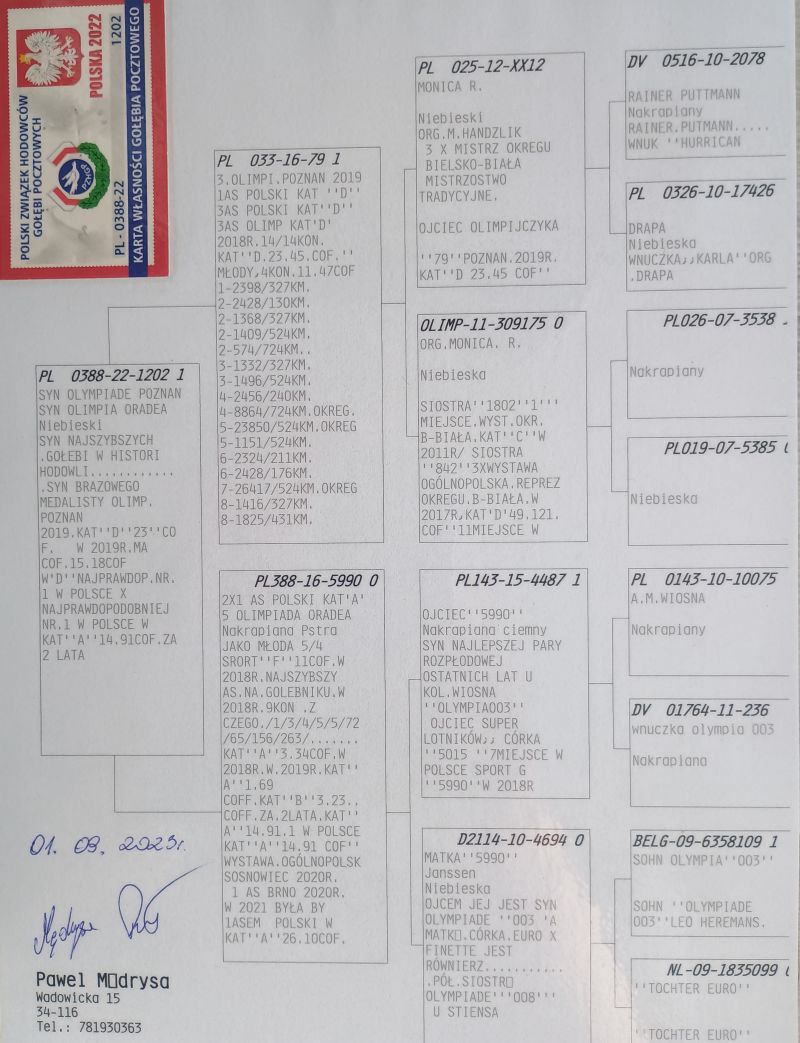 POLSKI ZWIĄZEK HODOWCÓW
GOŁĘBI POCZTOWYCH
POLSKA 2022
PZHGP
PL - 0388-22
1202
KARTA WŁASNOŚCI GOŁĘBIA POCZTOWEGO
PL 0388-22-1202 1
SYN OLYMPIADE POZNAN
SYN OLIMPIA ORADEA
Niebieski
SYN NAJSZYBSZYCH
.GOŁEBI W HISTORI
HODOWLI............
.SYN BRAZOWEGO
MEDALISTY OLIMP.
POZNAN
2019.KAT''D''23''CO
F. W 2019R.MA
COF.15.18COF
W'D''NAJPRAWDOP.NR.
1 W POLSCE X
NAJPRAWDOPODOBNIEJ
NR.1 W POLSCE W
KAT''A''14.91COF.ZA
2 LATA
PL 033-16-79 1
3.OLIMPI.POZNAN 2019
1AS POLSKI KAT ''D''
3AS POLSKI KAT''D''
3AS OLIMP KAT'D'
2018R.14/14KON.
KAT''D.23.45.COF.''
MŁODY,4KON.11.47COF
1-2398/327KM.
2-2428/130KM.
2-1368/327KM.
2-1409/524KM.
2-574/724KM..
3-1332/327KM.
3-1496/524KM.
4-2456/240KM.
4-8864/724KM.OKREG.
5-23850/524KM.OKREG
5-1151/524KM.
6-2324/211KM.
6-2428/176KM.
7-26417/524KM.OKREG
8-1416/327KM.
8-1825/431KM.
PL388-16-5990 0
2X1 AS POLSKI KAT'A'
5 OLIMPIADA ORADEA
Nakrapiana Pstra
JAKO MŁODA 5/4
SRORT''F''11COF.W
2018R.NAJSZYBSZY
AS.NA.GOLEBNIKU.W
2018R.9KON .Z
CZEGO./1/3/4/5/5/72
/65/156/263/.......
KAT''A''3.34COF.W
2018R.W.2019R.KAT''
A''1.69
COFF.KAT''B''3.23..
COFF.ZA.2LATA.KAT''
A''14.91.1 W POLSCE
KAT''A''14.91 COF''
WYSTAWA.OGÓLNOPOLSK
SOSNOWIEC 2020R.
1 AS BRNO 2020R.
W 2021 BYŁA BY
1ASEM POLSKI W
KAT''A''26.10COF.
PL 025-12-XX12
MONICA R.
Niebieski
ORG.M.HANDZLIK
3 X MISTRZ OKREGU
BIELSKO-BIAŁA
MISTRZOSTWO
TRADYCYJNE.
OJCIEC OLIMPIJCZYKA
''79''POZNAN.2019R.
KAT''D 23.45 COF''
OLIMP-11-309175 0
ORG.MONICA. R.
Niebieska
SIOSTRA''1802''1'''
MIEJSCE.WYST.OKR.
B-BIAŁA.KAT''C''W
2011R/ SIOSTRA
''842''3XWYSTAWA
OGÓLNOPOLSKA.REPREZ
OKREGU.B-BIAŁA.W
2017R,KAT'D'49.121.
COF''11MIEJSCE W
PL143-15-4487 1
OJCIEC''5990''
Nakrapiana ciemny
SYN NAJLEPSZEJ PARY
ROZPŁODOWEJ
OSTATNICH LAT U
KOL.WIOSNA
''OLYMPIA003''
OJCIEC SUPER
LOTNIKÓW,, CÓRKA
''5015 ''7MIEJSCE W
POLSCE SPORT G
''5990''W 2018R
D2114-10-4694 0
MATKA''5990''
Janssen
Niebieska
OJCEM JEJ JEST SYN
OLYMPIADE ''003 'A
MATK▯.CÓRKA.EURO X
FINETTE JEST
RÓWNIERZ...........
.PÓŁ.SIOSTR▯
OLYMPIADE'''008'''
U STIENSA
DV 0516-10-2078
RAINER PUTTMANN
Nakrapiany
RAINER.PUTMANN.....
WNUK ''HURRICAN
PL 0326-10-17426
DRAPA
Niebieska
WNUCZKA,,KARLA''ORG
.DRAPA
PL026-07-3538
Nakrapiany
PL019-07-5385
Niebieska
PL 0143-10-10075
A.M.WIOSNA
Nakrapiany
DV 01764-11-236
wnuczka olympia 003
Nakrapiana
BELG-09-6358109 1
SOHN OLYMPIA''003''
SOHN ''OLYMPIADE
003''LEO HEREMANS.
NL-09-1835099
''TOCHTER EURO''
''TOCHTER EURO''
01. 09. 2023r.
Paweł M▯drysa
Wadowicka 15
34-116
Tel.: 781930363